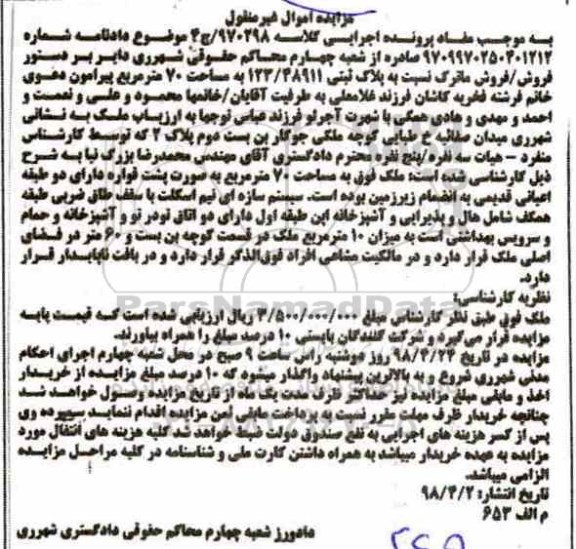 مزایده اموال غیرمنقول
به موجب مفاد پرونده اجرایی کلاسه ۹۷۰۲۹۸/ج۴ موضوع دادنامه شماره
۹۷۰۹۹۷۰۲۵۰۴۰۱۲۱۲ صادره از شعبه چهارم محاکم حقوقی شهرری دایر بر دستور
فروش/فروش ماترک نسبت به پلاک ثبتی ۱۲۳/۴۸۹۱۱ به مساحت ۷۰ مترمربع پیرامون دعوی
خانم فرشته فخریه کاشان فرزند غلامعلی به طرفیت آقایان/خانمها محمود و علی و نعمت و
احمد و مهدی و هادی همگی با شهرت آجرلو فرزند عباس توجها به ارزیاب ملک به نشانی
شهرری میدان صفائیه خ طبایی کوچه ملکی جوکار بن بست دوم پلاک ۲ که توسط کارشناس
منفرد - هیات سه نفره/پنج نفره محترم دادگستری آقای مهندس محمدرضا بزرگ نیا به شرح
ذیل کارشناسی شده است: ملک فوق به مساحت ۷۰ مترمربع به صورت پشت قواره دارای دو طبقه
اعیانی قدیمی به انضمام زیرزمین بوده است. سیستم سازه ای نیم اسکلت با سقف طاق ضربی طبقه
همکف شامل هال و پذیرایی و آشپزخانه این طبقه اول دارای دو اتاق تودر تو و آشپزخانه و حمام
و سرویس بهداشتی است به میزان ۱۰ مترمربع ملک در قسمت کوچه بن بست و ۶۰ متر در فضای
اصلی ملک قرار دارد و در مالکیت مشاعی افراد فوق الذکر قرار دارد و در بافت ناپایدار قرار
دارد.
نظریه کارشناسی:
ملک فوق طبق نظر کارشناس مبلغ ۳/۵۰۰/۰۰۰/۰۰۰ ریال ارزیابی شده است که قیمت پایه
مزایده قرار می‌گیرد و شرکت کنندگان بایستی ۱۰ درصد مبلغ را همراه بیاورند.
مزایده در تاریخ ۹۸/۴/۲۴ روز دوشنبه راس ساعت ۹ صبح در محل شعبه چهارم اجرای احکام
مدنی شهرری شروع و به بالاترین پیشنهاد واگذار میشود که ۱۰ درصد مبلغ مزایده از خریدار
اخذ و مابقی مبلغ مزایده نیز حداکثر ظرف مدت یک ماه از تاریخ مزایده وصول خواهد شد
چنانچه خریدار ظرف مهلت مقرر نسبت به پرداخت مابقی ثمن مزایده اقدام ننماید سپرده وی
پس از کسر هزینه های اجرایی به نفع صندوق دولت ضبط خواهد شد کلیه هزینه های انتقال مورد
مزایده به عهده خریدار میباشد به همراه داشتن کارت ملی و شناسنامه در کلیه مراحل مزایده
الزامی میباشد.
تاریخ انتشار: ۹۸/۴/۲
م الف ۶۵۳
دادورز شعبه چهارم محاکم حقوقی دادگستری شهرری
ParsNamadData